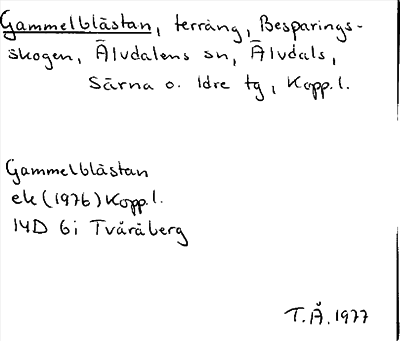 Gammelblästan, terräng, Besparings-
skogen, Älvdalens sn, Älvdals,
Särna o. Idre tg, Kopp.l.
Gammelblästan
ek (1976) Kopp.l.
14D 6i Tvåråberg
T.Å. 1977